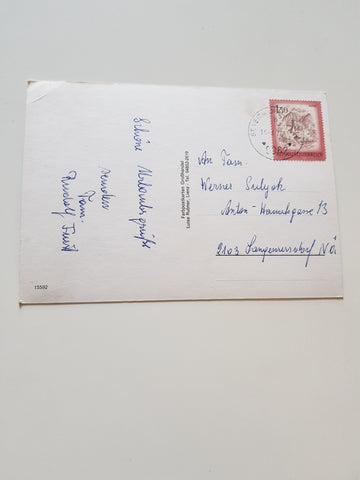 Schöne Urlaubsgrüße
senden
Fam.
Rudolf
Farbpostkarten Großhandel
Luise Rohner, Lienz Tel. 04852-2619
15592
1.50
REPUBLIK ÖSTERREICH
An Fam.
Werner
Anton-Hauslgasse 13
2103 Langenzersdorf NÖ